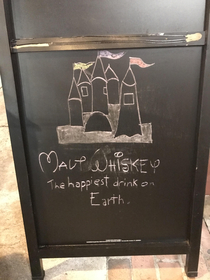 Malt Whiskey
The happiest drink on
Earth.